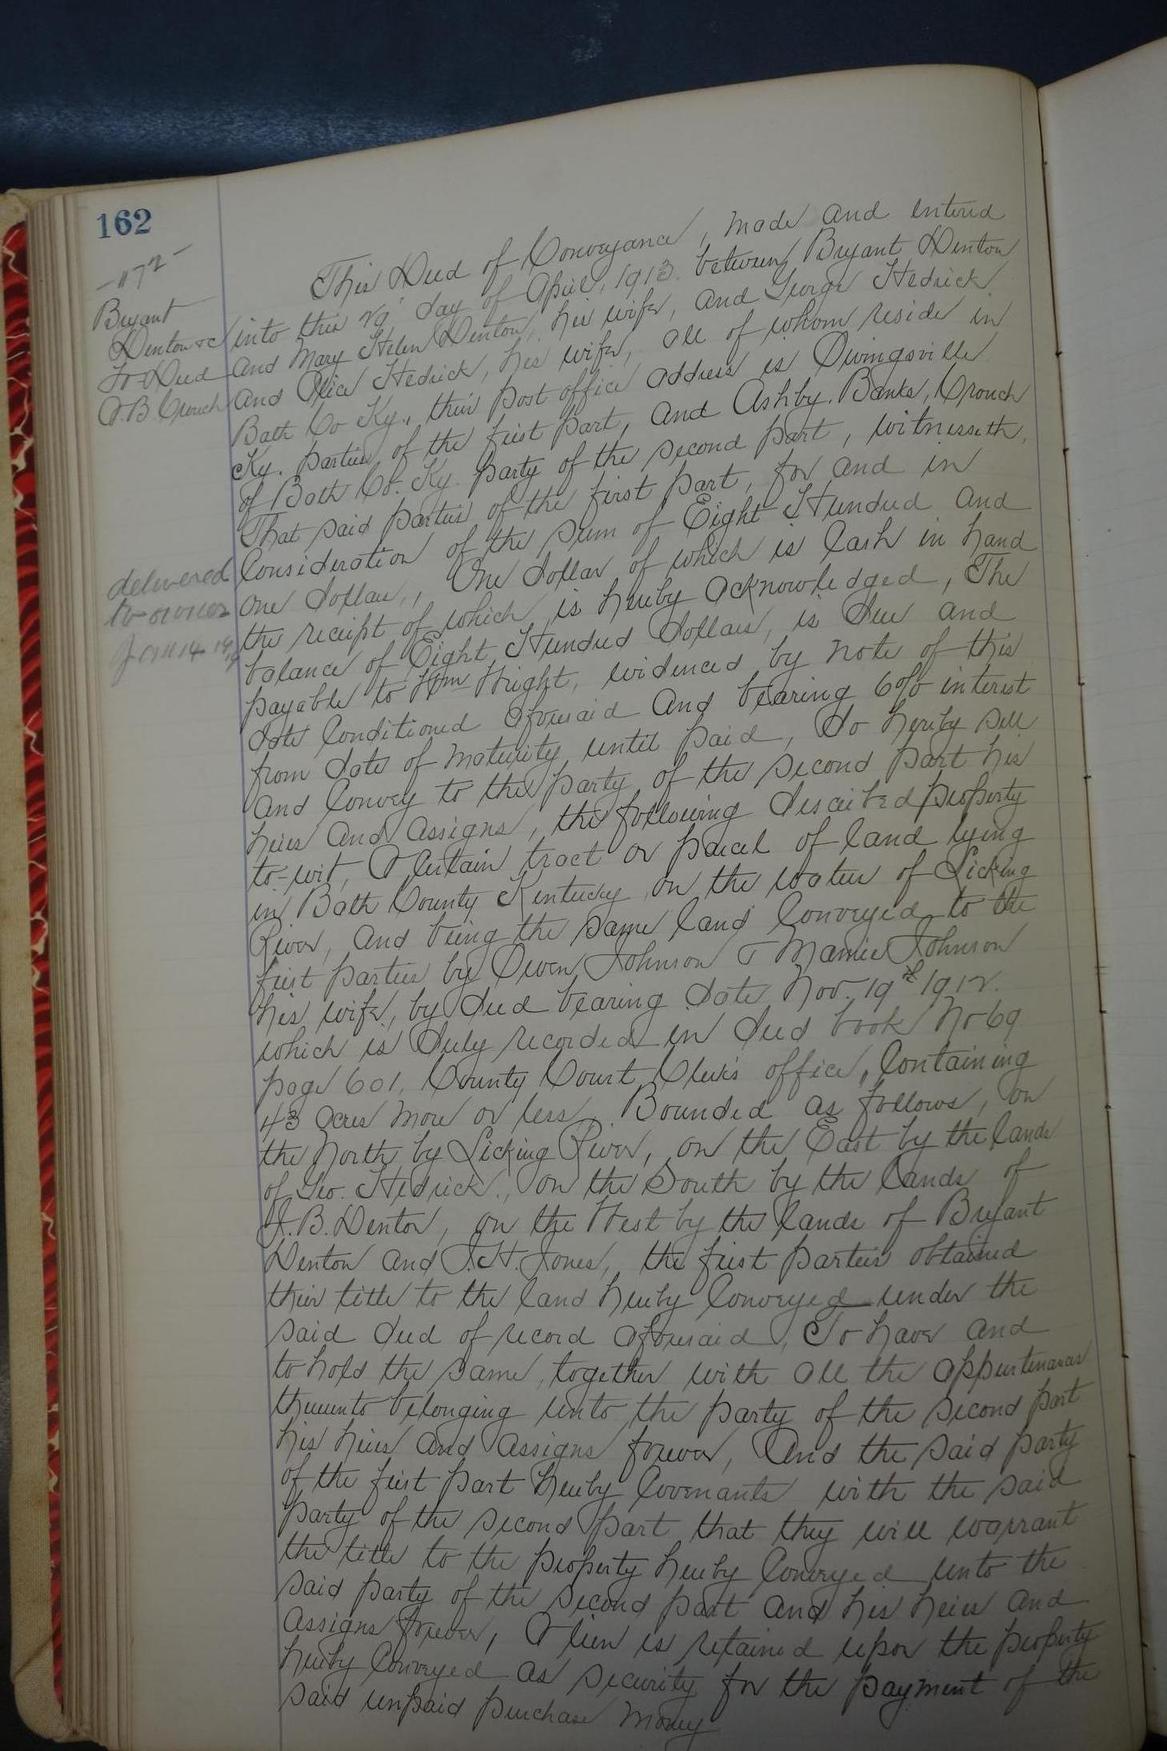 162
-172-
Bryant
Denton &c
To Deed
A.B Crouch
delivered
to owner
This Deed of Conveyance, made and entered
into this 29" day of April, 1913. between Bryant Denton
and Mary Helen Denton, his wife, and George Hedrick
and Alice Hedrick, his wife, all of whom reside in
Bath Co Ky., their post office address is Owingsville
Ky. parties of the first part, and Ashby. Banks, Crouch
of Bath Co. Ky. party of the second part, witnesseth,
That said parties of the first part, for and in
Consideration of the sum of Eight Hundred and
One dollar,, One dollar of which is Cash in hand
the receipt of which is hereby acknowledged, The
balance of Eight Hundred dollars, is due and
payable to Wm Wright, evidenced by note of this
date Conditioned aforesaid and bearing 6% interest
from date of maturity until paid, do hereby sell
and Convey to the party of the second part his
heirs and assigns, the following described property
to-wit, A Certain tract or parcel of land lying
in Bath County Kentucky on the waters of Licking
River, and being the same land Conveyed to the
first parties by Owen Johnson & Mamie Johnson
his wife, by deed bearing date Nov. 19th 1912.
which is duly recorded in deed book No 69
page 601, County Court Clerks office, Containing
43 acres more or less. Bounded as follows, on
the North by Licking River, on the East by the lands
of Geo. Hedrick., on the South by the lands of
J.B. Denton, on the West by the lands of Bryant
Denton and J.H. Jones, the first parties obtained
their title to the land hereby Conveyed under the
said deed of record aforesaid, To have and
to hold the same, together with all the appurtenances
thereunto belonging unto the party of the second part
his heirs and assigns forever, And the said party
of the first part hereby Covenants with the said
party of the second part that they will warrant
the title to the property hereby Conveyed unto the
said party of the second part and his heirs and
assigns forever, A lien is retained upon the property
hereby Conveyed as security for the payment of the
said unpaid purchase money